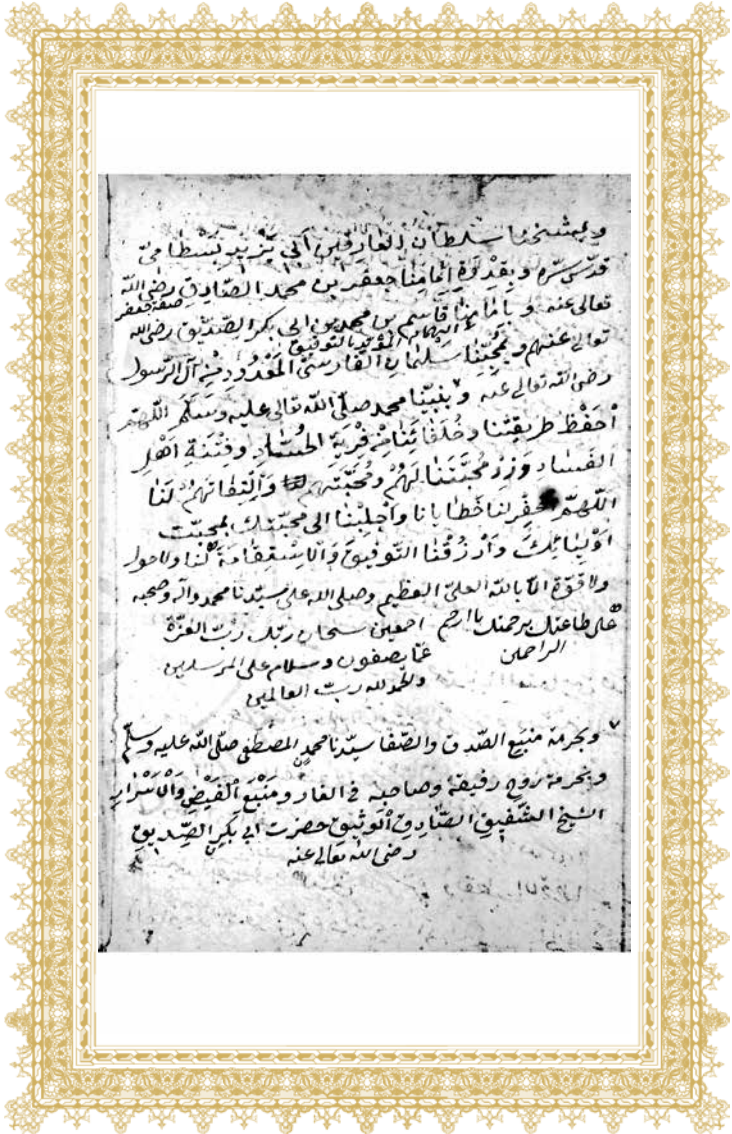 وبمشيخنا سلطان العارفين ابي يزيد بسطامي
قدّس سرّه وبقدوة إمامنا جعفر ابن محمد الصّادق رضى الله
تعالى عنه وبامامنا قاسم بن محمد بن ابى بكر الصّدّيق رضى الله
صفة جعفر
الهمام المؤيد بالتوفيق
تعالى عنهم وبمحبّنا سلمان الفارسىّ المعدود من آل الرّسول
رضى الله تعالى عنه وبنبيّنا محمد صلّى الله تعالى عليه وسلّم اللّهمّ
أحفظ طريقتنا وخلفائنا من فرية الحسّاد وفتنة اهل
الفساد وزد محبّتنا لهم ومحبّتهم والتفاتهم لنا
اللّهمّ لنا خطايانا واجلبنا الى محبّتك بمحبّت
اوليائك وارزقنا التّوفيق والاستقامة لنا ولا حول
ولا قوّة الّا بالله العلىّ العظيم وصلى الله على سيّدنا محمد وآله وصحبه
على طاعتك برحمتك يا ارحم
الراحمين
اجمعين سبحان ربّك ربّ العزّة
عمّا يصفون وسلام على المرسلين
والحمد لله ربّ العالمين
وبحرمة منبع الصّدق والصّفا سيّدنا محمد المصطفى صلّى الله عليه وسلّم
وبحرمة روح رفيقه وصاحبه فى الغار ومنبع الفيض والاسرار
الشيخ الشّفيق الصّادق الوثيق حضرت ابى بكر الصّديق
رضى الله تعالى عنه